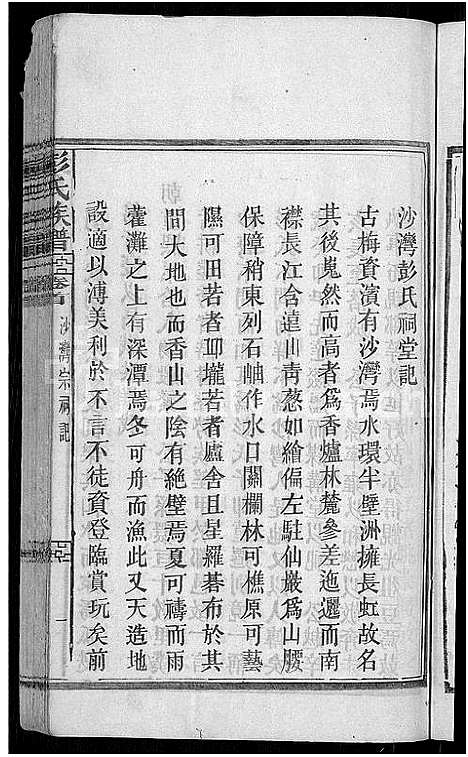 沙灣彭氏祠堂記
古梅資濱有沙灣焉水環半壁洲擁長虹故名
其後嵬然而高者爲香爐林麓參差迤邐而南
襟長江含遠山青葱如繪偏左駐仙巖爲山腰
保障稍東列石岫作水口關欄林可樵原可藝
隰可田若者邱壠若者廬舍且星羅碁布於其
間大地也而香山之陰有絕壁焉夏可禱而雨
藿灘之上有深潭焉冬可舟而漁此又天造地
設適以溥美利於不言不徒資登臨賞玩矣前
彭氏族譜 卷首 沙灣宗祠記 一